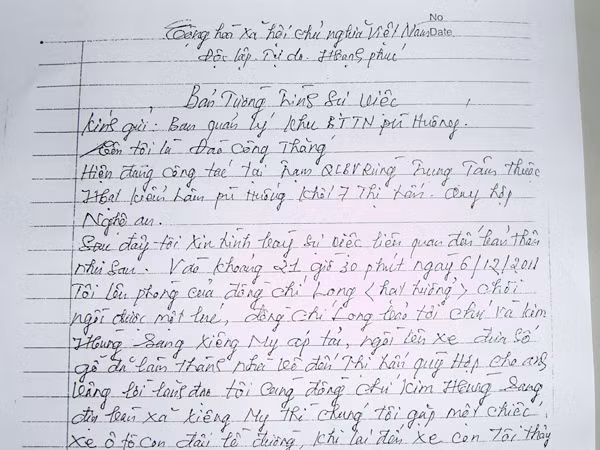 No
Cộng hoà xã hội chủ nghĩa Việt Nam Date
Độc lập Tự do Hạnh phúc
Bản Tường trình sự việc
Kính gửi: Ban quản lý khu BTTN pù Huống.
tôi là Đào Công Thắng
Hiện đang công tác tại Trạm QLBVRừng Trung Tâm thuộc
Hạt kiểm lâm pù Huống khối 7 Thị trấn. Quỳ hợp
Nghệ an.
Sau đây tôi xin trình bày sự việc liên quan đến bản thân
như sau. Vào khoảng 21 giờ 30 phút ngày 6/12/2011
Tôi lên phòng của đồng chí Long <hạt trưởng> chơi
ngồi được một lúc, đồng chí Long bảo tôi chú và kim
Hùng sang xiêng My áp tải, ngồi lên xe đưa số
gỗ đã làm thành nhà về đến Thị trấn quỳ Hợp cho anh
Vâng lời lãnh đạo tôi cùng đồng chí Kim Hùng Sang
đến bản xã xiêng My thì chúng tôi gặp một chiếc
xe ô tô con đậu lề đường, khi lái đến xe con Tôi thấy